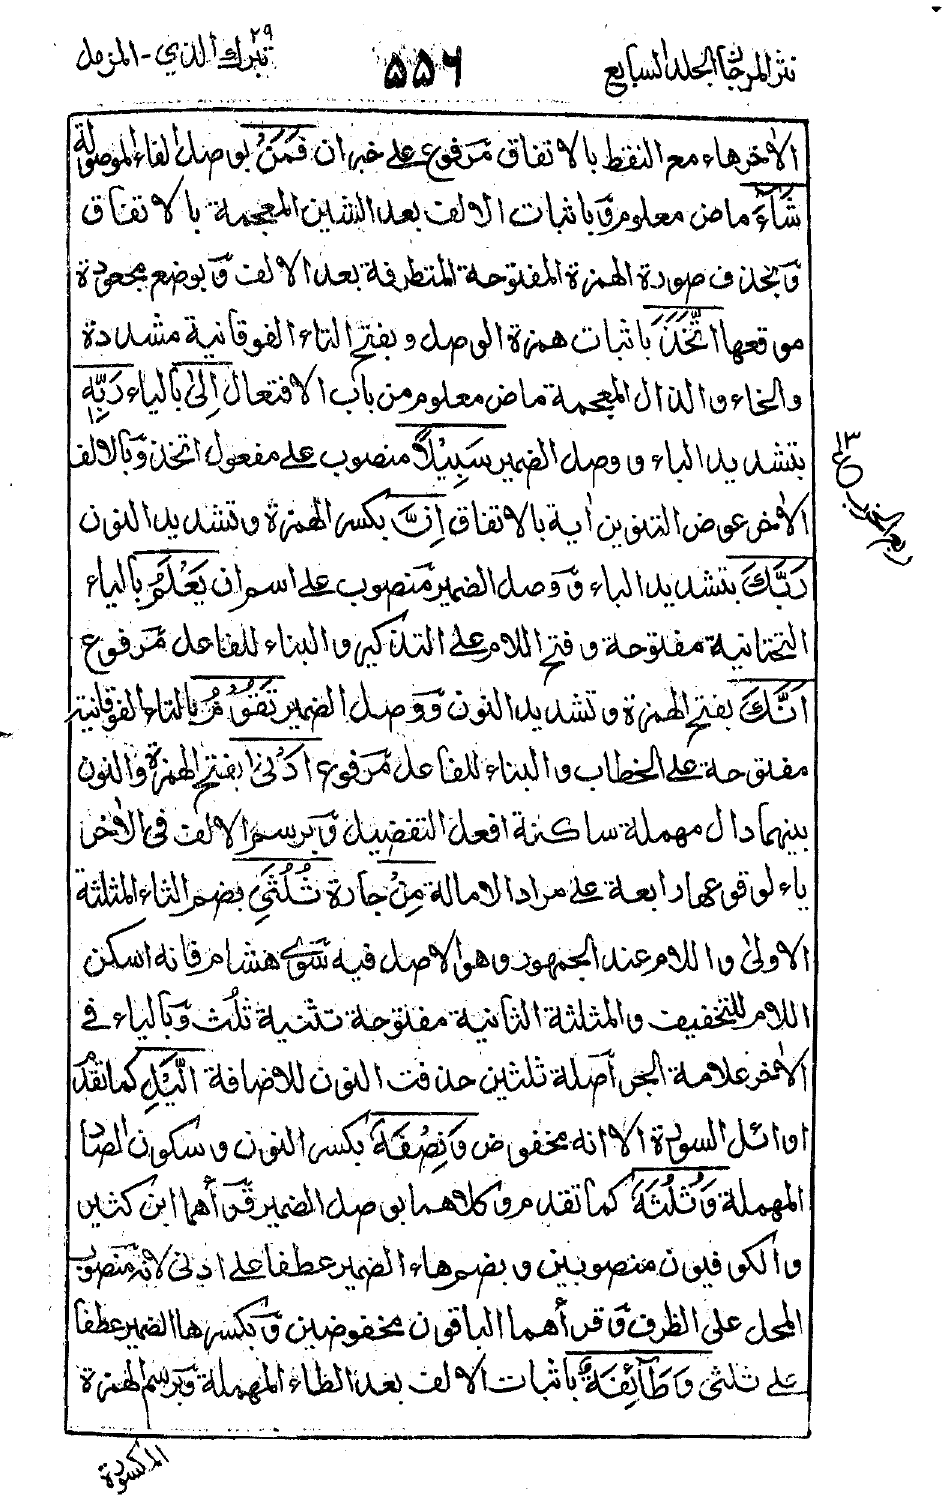 نثر المرجان الجلد السابع
۵۵۶
تبرك الذي ۲۹ - المزمل
الاٰخرهاء مع النقط بالاتفاق مرفوع على خبر ان فَمَنْ بوصل الفاء الموصولة
شَآءَ ماض معلوم وباثبات الالف بعد الشين المعجمة بالاتفاق
وبحذف صورة الهمزة المفتوحة المتطرفة بعد الالف وبوضع مجعودة
موقعها اتَّخَذَ باثبات همزة الوصل وبفتح التاء الفوقانية مشددة
والخاء والذال المعجمة ماض معلوم من باب الافتعال اِلٰى بالياء رَبِّهٖ
بتشديد الباء ووصل الضمير سَبِيْلًا منصوب على مفعول اتخذ وبالالف
الاٰخر عوض التنوين اٰية بالاتفاق اِنَّ بكسر الهمزة وتشديد النون
رَبَّكَ بتشديد الباء ووصل الضمير منصوب على اسم ان يَعْلَمُ بالياء
التحتانية مفتوحة وفتح اللام على التذكير والبناء للفاعل مرفوع
اَنَّكَ بفتح الهمزة وتشديد النون ووصل الضمير تَقُوْمُ بالتاء الفوقانية
مفتوحة على الخطاب والبناء للفاعل مرفوع اَدْنٰى بفتح الهمزة والنون
بينهما دال مهملة ساكنة افعل التفضيل وبرسم الالف في الاٰخر
ياء لوقوعها رابعة على مراد الامالة مِنْ جارة ثُلُثَيِ بضم الثاء المثلثة
الاولى واللام عند الجمهور وهو الاصل فيه سوى هشام فانه اسكن
اللام للتخفيف والمثلثة الثانية مفتوحة تثنية ثلُث وبالياء في
الاٰخر علامة الجر أصله ثلثين حذفت النون للاضافة الَّيْلِ كما تقدم
اوائل السورة الا انه مخفوض وَنِصْفَهٗ بكسر النون وسكون الصاد
المهملة وَثُلُثَهٗ كما تقدم وكلاهما بوصل الضمير قرأهما ابن كثير
والكوفيون منصوبين وبضم هاء الضمير عطفا على ادنى لانه منصوب
المحل على الظرف وقرأهما الباقون مخفوضين وبكسر هاء الضمير عطفا
على ثلثي وَطَآئِفَةٌ باثبات الالف بعد الطاء المهملة وبرسم الهمزة
المكسورة